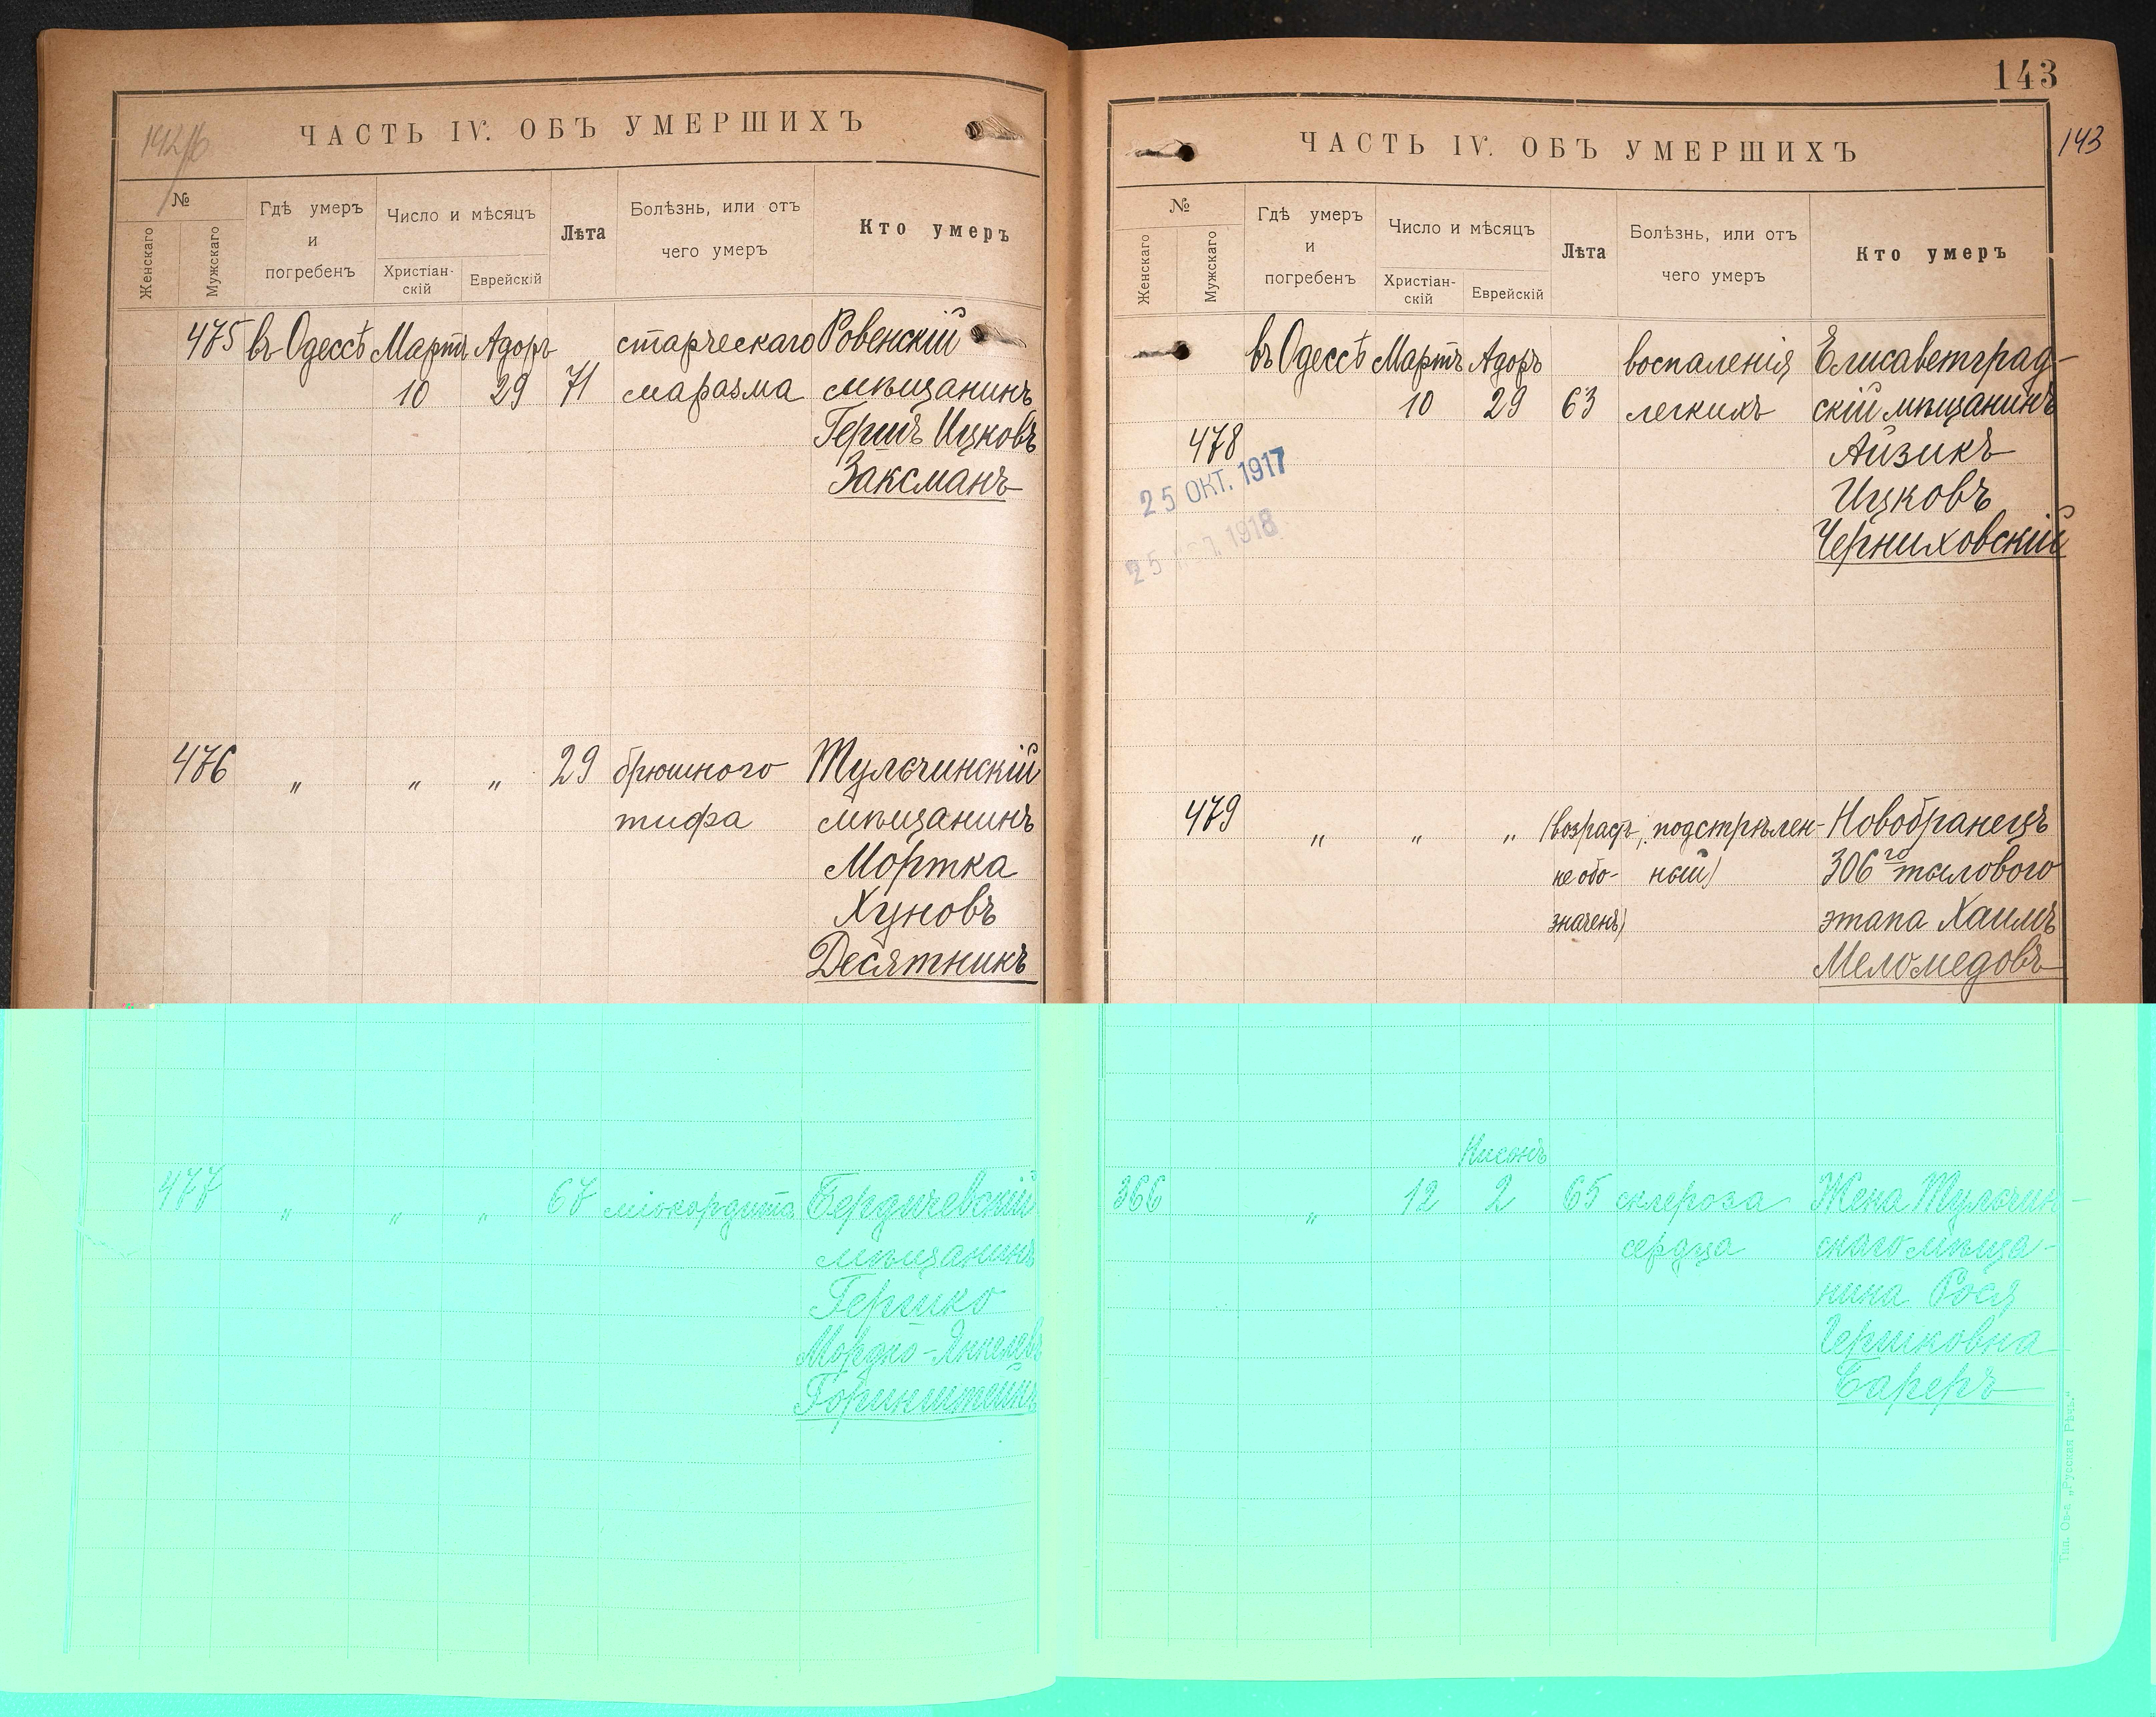 142/б
ЧАСТЬ IV. ОБЪ УМЕРШИХЪ
№
Женскаго
Мужскаго
Гдѣ умеръ
и
погребенъ
Число и мѣсяцъ
Христіан-
скій
Еврейскій
Лѣта
Болѣзнь, или отъ
чего умеръ
Кто умеръ
475 въ Одессѣ Мартъ Адоръ старческаго Ровенскій
10 29 71 маразма мѣщанинъ
Гершъ Ицковъ
Заксманъ
476 „ „ „ 29 брюшного Тульчинскій
тифа мѣщанинъ
Мортка
Хуновъ
Десятникъ
477 „ „ „ 67 міокардита Бердичевскій
мѣщанинъ
Гершко
Мордко-Янкелевъ
Горинштейнъ
143
143
ЧАСТЬ IV. ОБЪ УМЕРШИХЪ
№
Женскаго
Мужскаго
Гдѣ умеръ
и
погребенъ
Число и мѣсяцъ
Христіан-
скій
Еврейскій
Лѣта
Болѣзнь, или отъ
чего умеръ
Кто умеръ
въ Одессѣ Мартъ Адоръ воспаленія Елисаветград-
10 29 63 легкихъ скій мѣщанинъ
478 Айзикъ
25 ОКТ. 1917
Ицковъ
25 1918
Черниховскій
479 „ „ „ (возрастъ подстрѣлен- Новобранецъ
не обо- ный) 306го тылового
значенъ) этапа Хаимъ
Меломедовъ
Нисонъ
366 „ 12 2 65 склероза Жена Тульчин-
сердца скаго мѣща-
нина Рося
Гершковна
Бареръ
Тип. О-ва „Русская Рѣчь.“